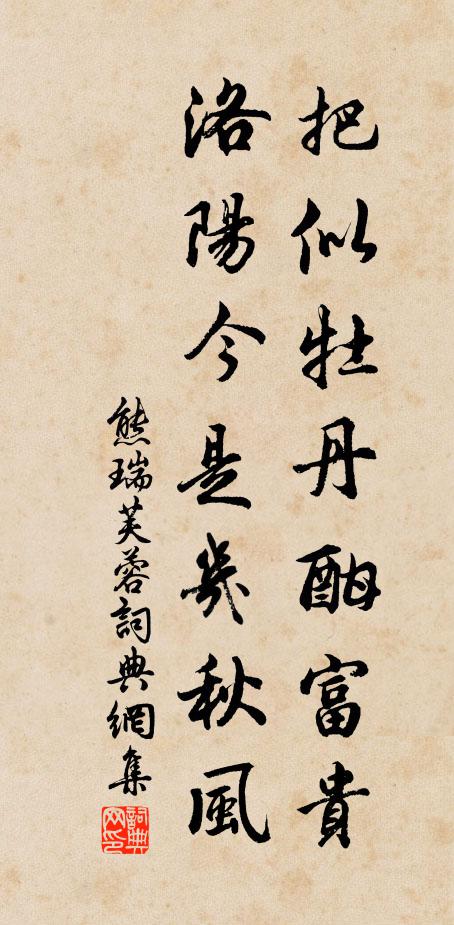 把似牡丹酣富貴
洛陽今是幾秋風
熊瑞芙蓉詞典網集
詞典網印